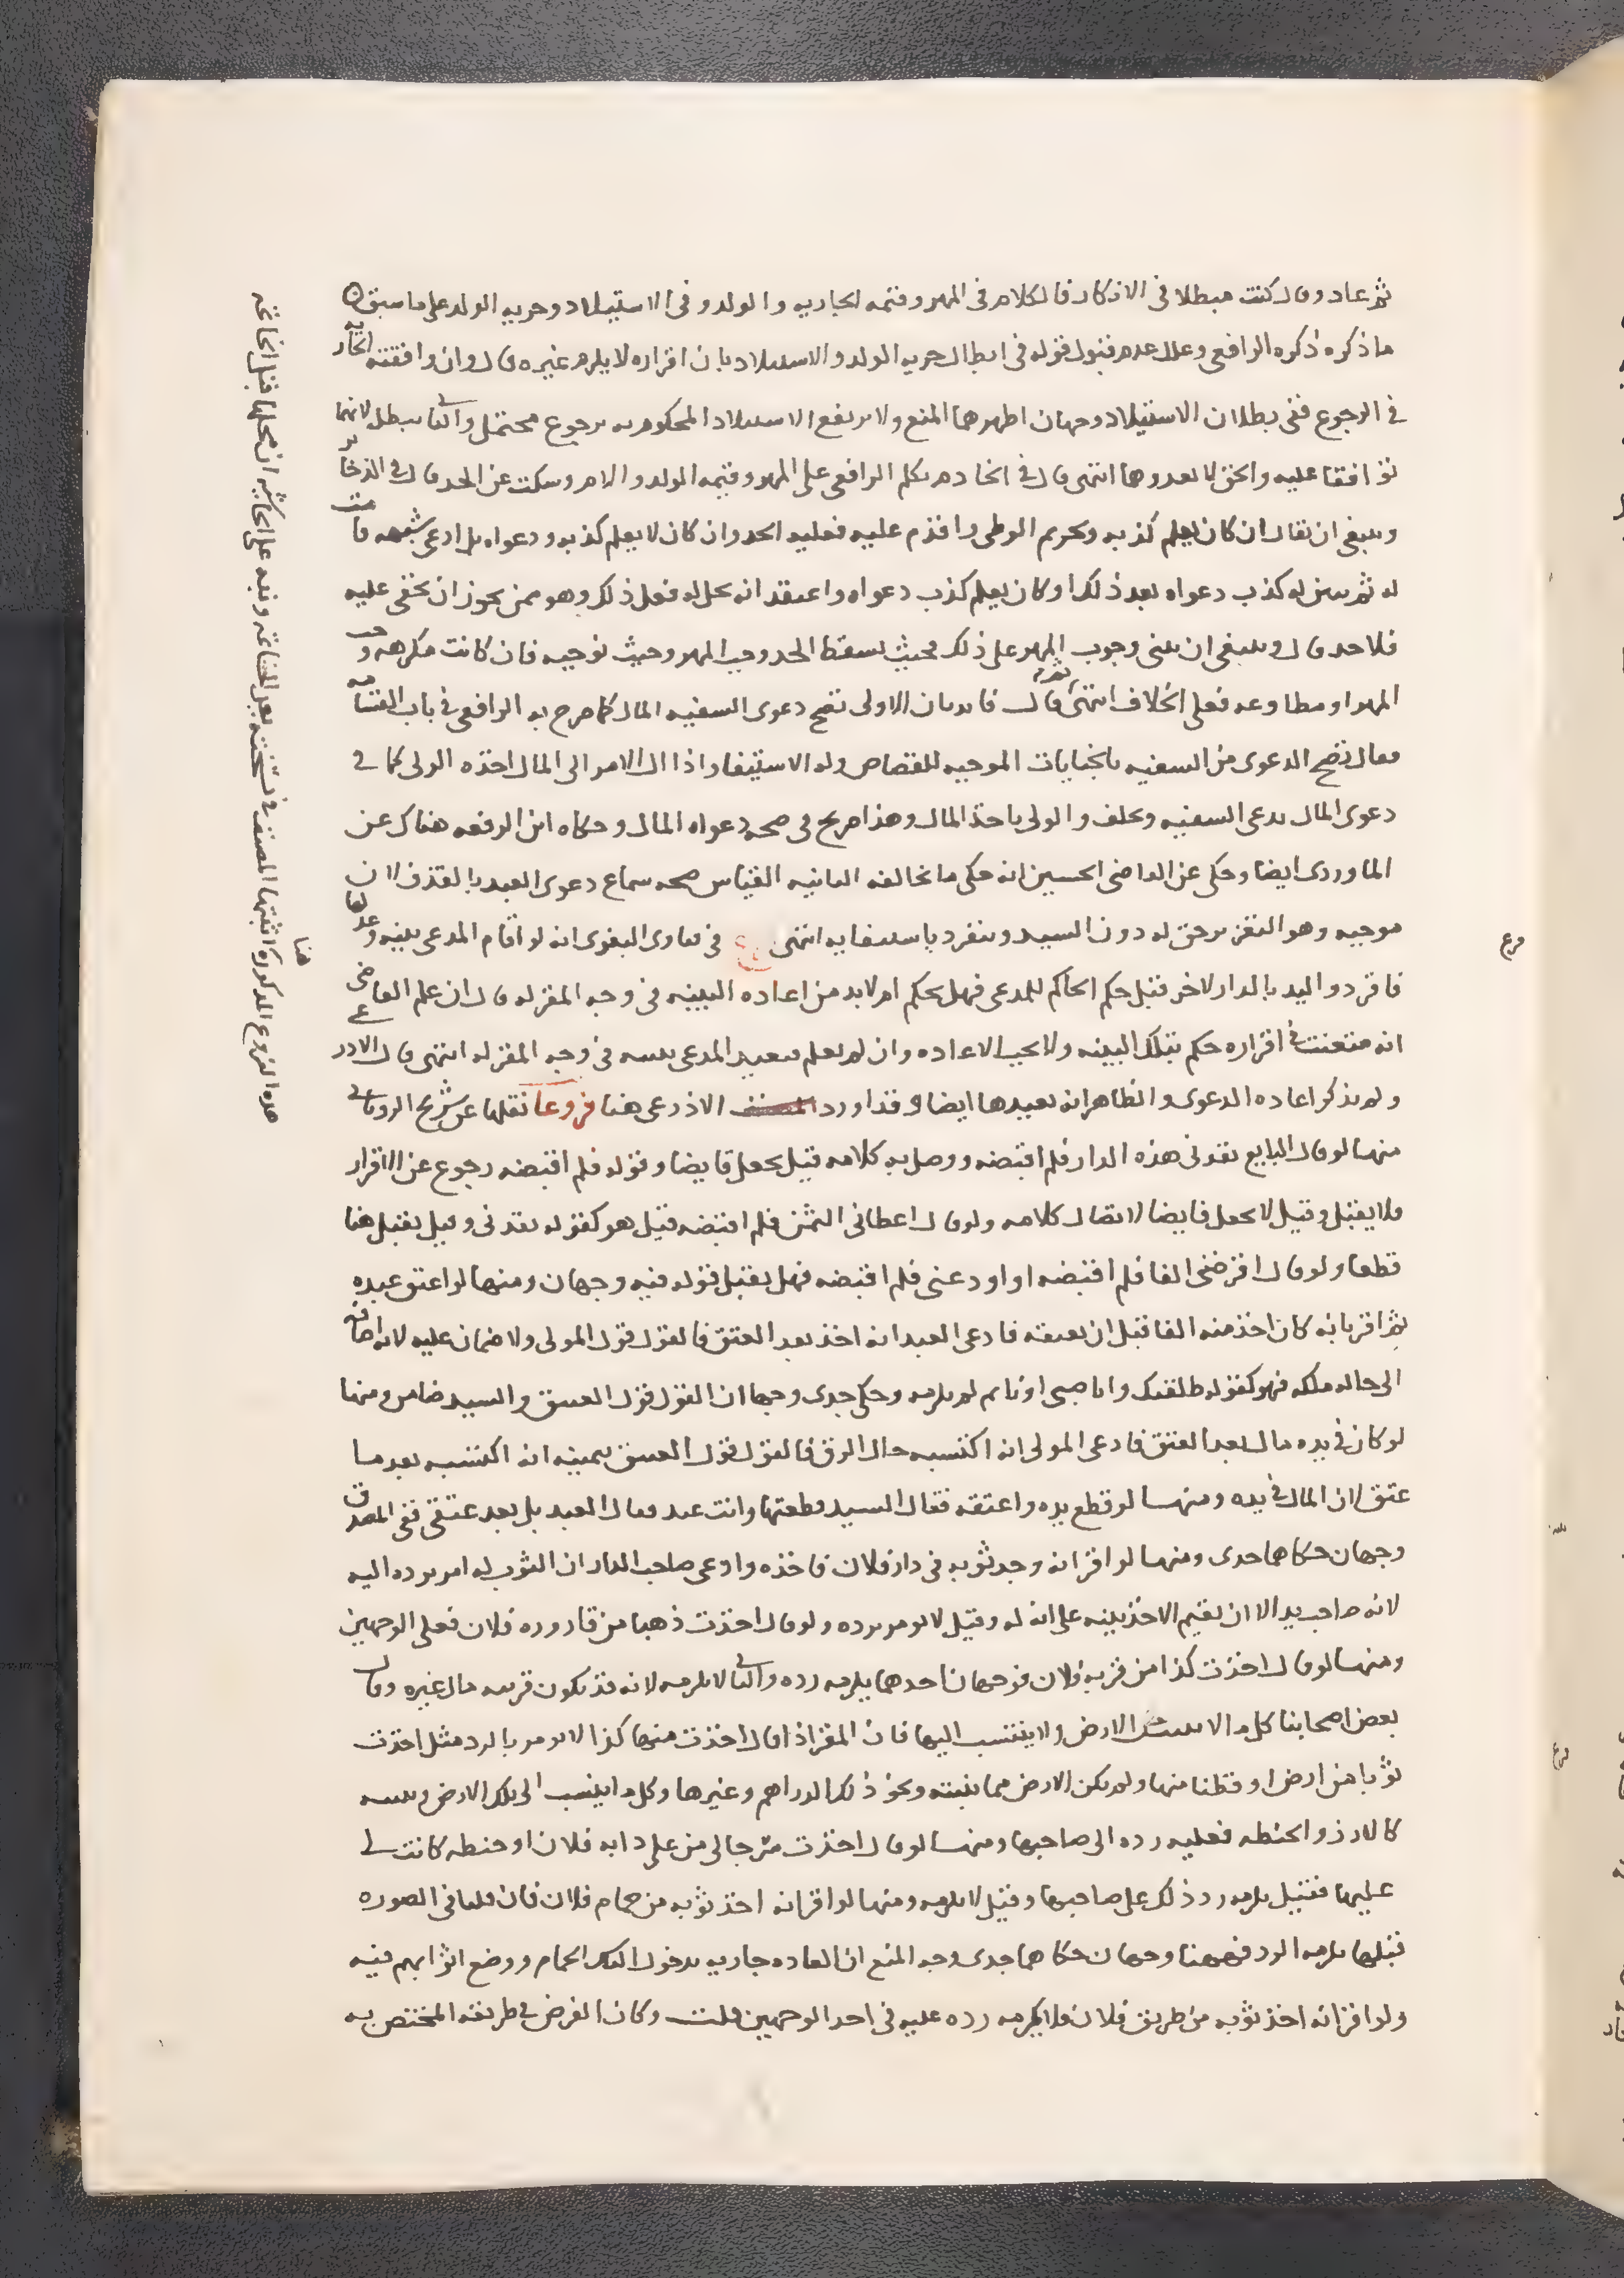 ثم عاد وقال كنت مبطلا في الانكار فالكلام في المهر وقيمه الجاريه والولد وفي الاستيلاد وحريه الولد على ما سبق
ما ذكره ذكره الرافعي وعلل عدم قبول قوله في ابطال حريه الولد والاستيلاد بان اقراره لا يلزم غيره قال وان وافقته الجاريه
في الرجوع ففي بطلان الاستيلاد وجهان اظهرهما المنع ولا يرتفع الاستيلاد المحكوم به برجوع محتمل والثاني يبطل لانهما
توافقا عليه والحق لا يعدوهما انتهى قال في الخادم تكلم الرافعي على المهر وقيمه الولد والام وسكت عن الحد قال في الذخائر
وينبغي ان يقال ان كان يعلم كذبه وتحريم الوطي واقدم عليه فعليه الحد وان كان لا يعلم كذبه ودعواه بل ادعى شبهه قامت
له ثم تبين له كذب دعواه بعد ذلك او كان يعلم كذب دعواه واعتقد انه يحل له فعل ذلك وهو ممن يجوز ان يخفى عليه
فلا حد قال وينبغي ان يبنى وجوب المهر على ذلك فحيث يسقط الحد وجب المهر وحيث نوجبه فان كانت مكرهه وجب
المهر او مطاوعه فعلى الخلاف انتهى قال فايدتان الاولى تصح دعوى السفيه المال كما صرح به الرافعي في باب القسامه
فقال تصح الدعوى من السفيه بالجنايات الموجبه للقصاص وله الاستيفاء واذا ال الامر الى المال اخذه الولي كما في
دعوى المال يدعي السفيه ويحلف والولي ياخذ المال وهذا صريح في صحه دعواه المال وحكاه ابن الرفعه هناك عن
الماوردي ايضا وحكى عن القاضي الحسين انه حكى ما يخالفه الثانيه القياس صحه سماع دعوى العبد بالقذف لان
موجبه وهو التعزير حق له دون السيد وينفرد باستيفايه انتهى في فتاوى البغوي انه لو اقام المدعي بينه وعدلها
فاقر ذو اليد بالدار لاخر قبل حكم الحاكم للمدعي فهل يحكم ام لا بد من اعاده البينه في وجه المقر له قال ان علم القاضي
انه متعنت في اقراره حكم بتلك البينه ولا يجب الاعاده وان لم يعلم فيعيد المدعي بينته في وجه المقر له انتهى قال الاذرعي
ولم يذكر اعاده الدعوى والظاهر انه يعيدها ايضا وقد اورد الاذرعي هنا فروعا نقلها عن شريح الروياني
منها لو قال البايع نقدني هذه الدار فلم اقبضه ووصل به كلامه قيل يجعل قابضا وقوله فلم اقبضه رجوع عن الاقرار
فلا يقبل وقيل لا يجعل قابضا لاتصال كلامه ولو قال اعطاني الثمن فلم اقبضه قيل هو كقوله نقدني وقيل يقبل هنا
قطعا ولو قال اقرضني الفا فلم اقبضه او اودعني فلم اقبضه فهل يقبل قوله فيه وجهان ومنها لو اعتق عبده
ثم اقر بانه كان اخذ منه الفا قبل ان يعتقه فادعى العبد انه اخذ بعد العتق فالقول قول المولى ولا ضمان عليه لانه اضافه
الى حاله ملكه فهو كقوله طلقتك وانا صبي او نايم لم يلزمه وحكى جدي وجها ان القول قول العتيق والسيد ضامن ومنها
لو كان في يده مال بعد العتق فادعى المولى انه اكتسبه حال الرق فالقول قول العتيق بيمينه انه اكتسبه بعد ما
عتق لان المال في يده ومنها لو قطع يده واعتقه فقال السيد قطعتها وانت عبد فقال العبد بل بعد عتقي ففي المصدق
وجهان حكاهما جدي ومنها لو اقر انه وجد ثوبه في دار فلان فاخذه وادعى صاحب الدار ان الثوب له امر برده اليه
لانه صاحب يد الا ان يقيم الاخذ بينه على انه له وقيل لا يومر برده ولو قال اخذت ذهبا من قاروره فلان فعلى الوجهين
ومنها لو قال اخذت كذا من قريه فلان فوجهان احدهما يلزمه رده والثاني لا يلزمه لانه قد يكون قريته مال غيره وقال
بعض اصحابنا كل ما لا الارض ولا ينتسب اليها فان المقر اذا قال اخذت منها كذا لا يومر بالرد مثل اخذت
ثوبا من ارض او قطنا منها ولم يكن الارض مما ينبته ونحو ذلك الدراهم وغيرها وكل ما ينسب الى تلك الارض
كالارز والحنطه فعليه رده الى صاحبها ومنها لو قال اخذت سرجا لي من على دابه فلان او حنطه كانت لي
عليها فقيل يلزمه رد ذلك على صاحبها وقيل لا يلزمه ومنها لو اقر انه اخذ ثوبه من حمام فلان فان قلنا في الصوره
قبلها يلزمه الرد فههنا وجهان حكاهما جدي وجه المنع ان العاده جاريه بدخول الناس الحمام ووضع اثوابهم فيه
ولو اقر انه اخذ ثوبه من طريق فلان فلا يلزمه رده عليه في احد الوجهين قلت وكان الفرض في طريقه المختص به
هذه الفروع المذكوره هنا اثبتها المصنف في نسخته بعد الخاتمه ونبه على الحاشيه ان محلها قبل الخاتمه
فرع